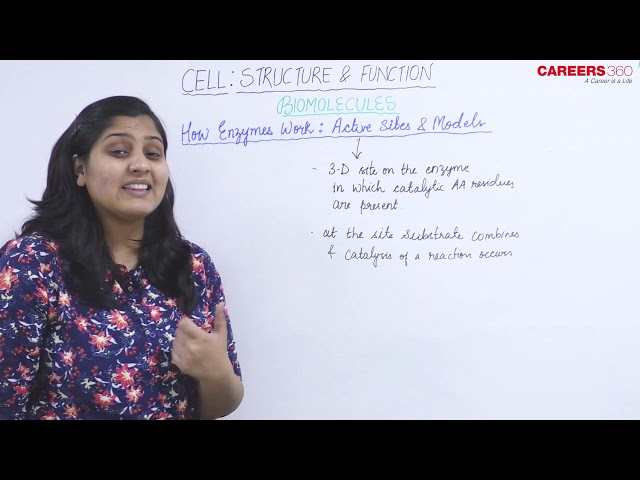 CELL: STRUCTURE & FUNCTION
CAREERS360
A Career is a Life
BIOMOLECULES
How Enzymes Work: Active Sites & Models
- 3-D site on the enzyme
in which catalytic AA residues
are present.
· at the site substrate combines
& catalysis of a reaction occurs